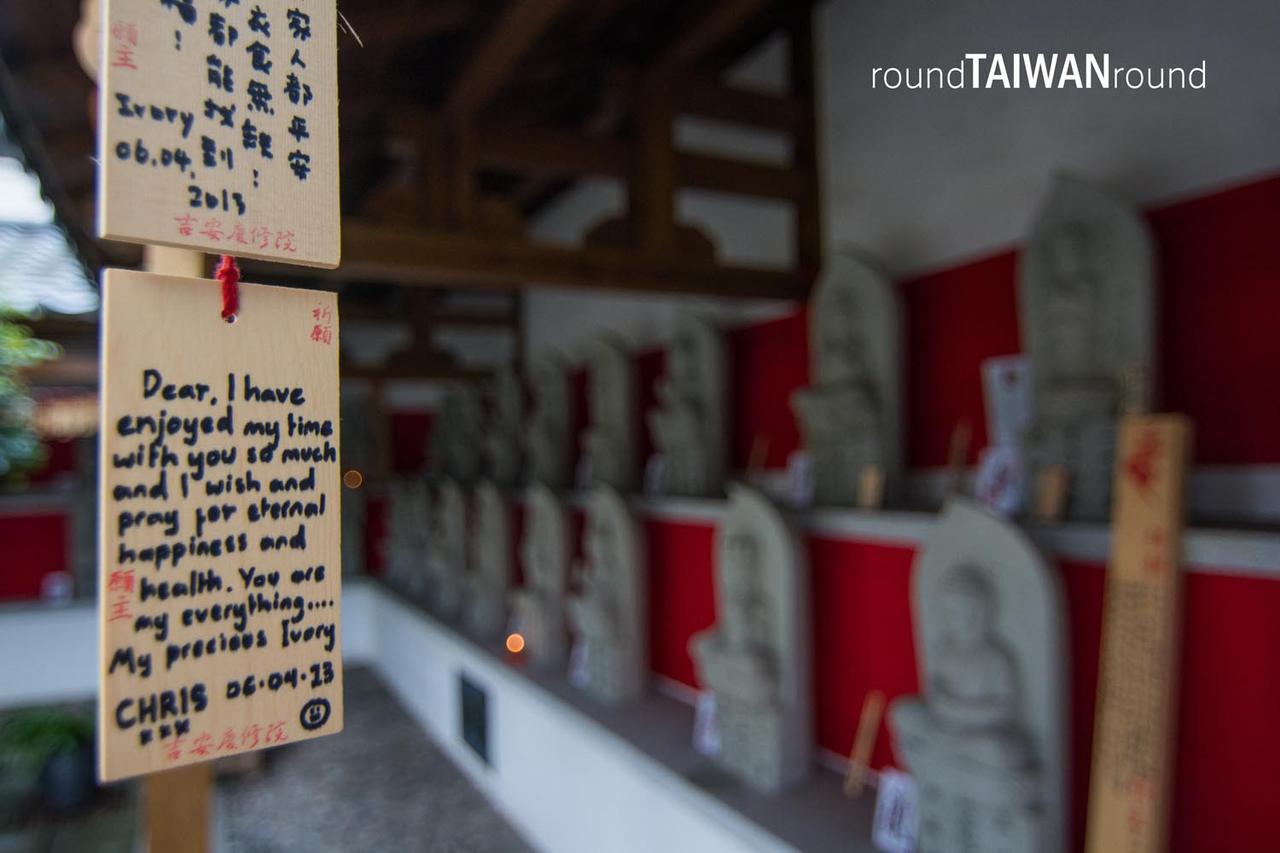 家人都平安
衣食無缺!
都能找到
福!
願主
Ivory
06.04.
2013
吉安慶修院
祈願
Dear, I have
enjoyed my time
with you so much
and I wish and
pray for eternal
happiness and
health. You are
my everything....
My precious Ivory
願主
CHRIS 06.04.13
xxx
吉安慶修院
roundTAIWANround